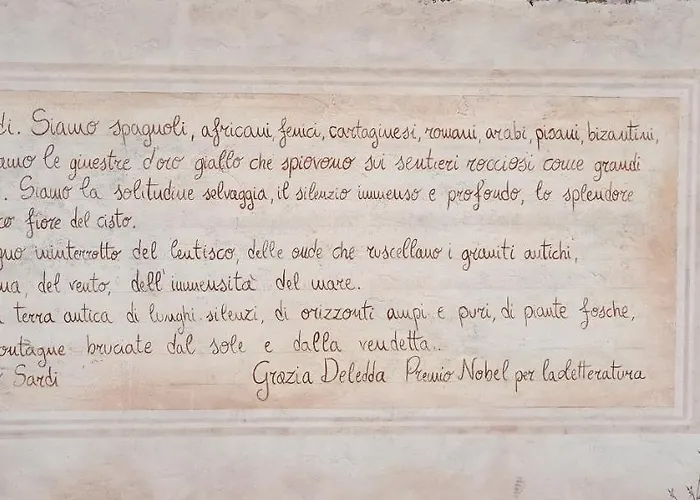 di. Siamo spagnoli, africani, fenici, cartaginesi, romani, arabi, pisani, bizantini,
amo le ginestre d'oro giallo che spiovono sui sentieri rocciosi come grandi
. Siamo la solitudine selvaggia, il silenzio immenso e profondo, lo splendore
co fiore del cisto.
gno ininterrotto del lentisco, delle onde che ruscellano i graniti antichi,
na, del vento, dell'immensità del mare.
a terra antica di lunghi silenzi, di orizzonti ampi e puri, di piante fosche,
ontagne bruciate dal sole e dalla vendetta.
Sardi
Grazia Deledda Premio Nobel per la letteratura